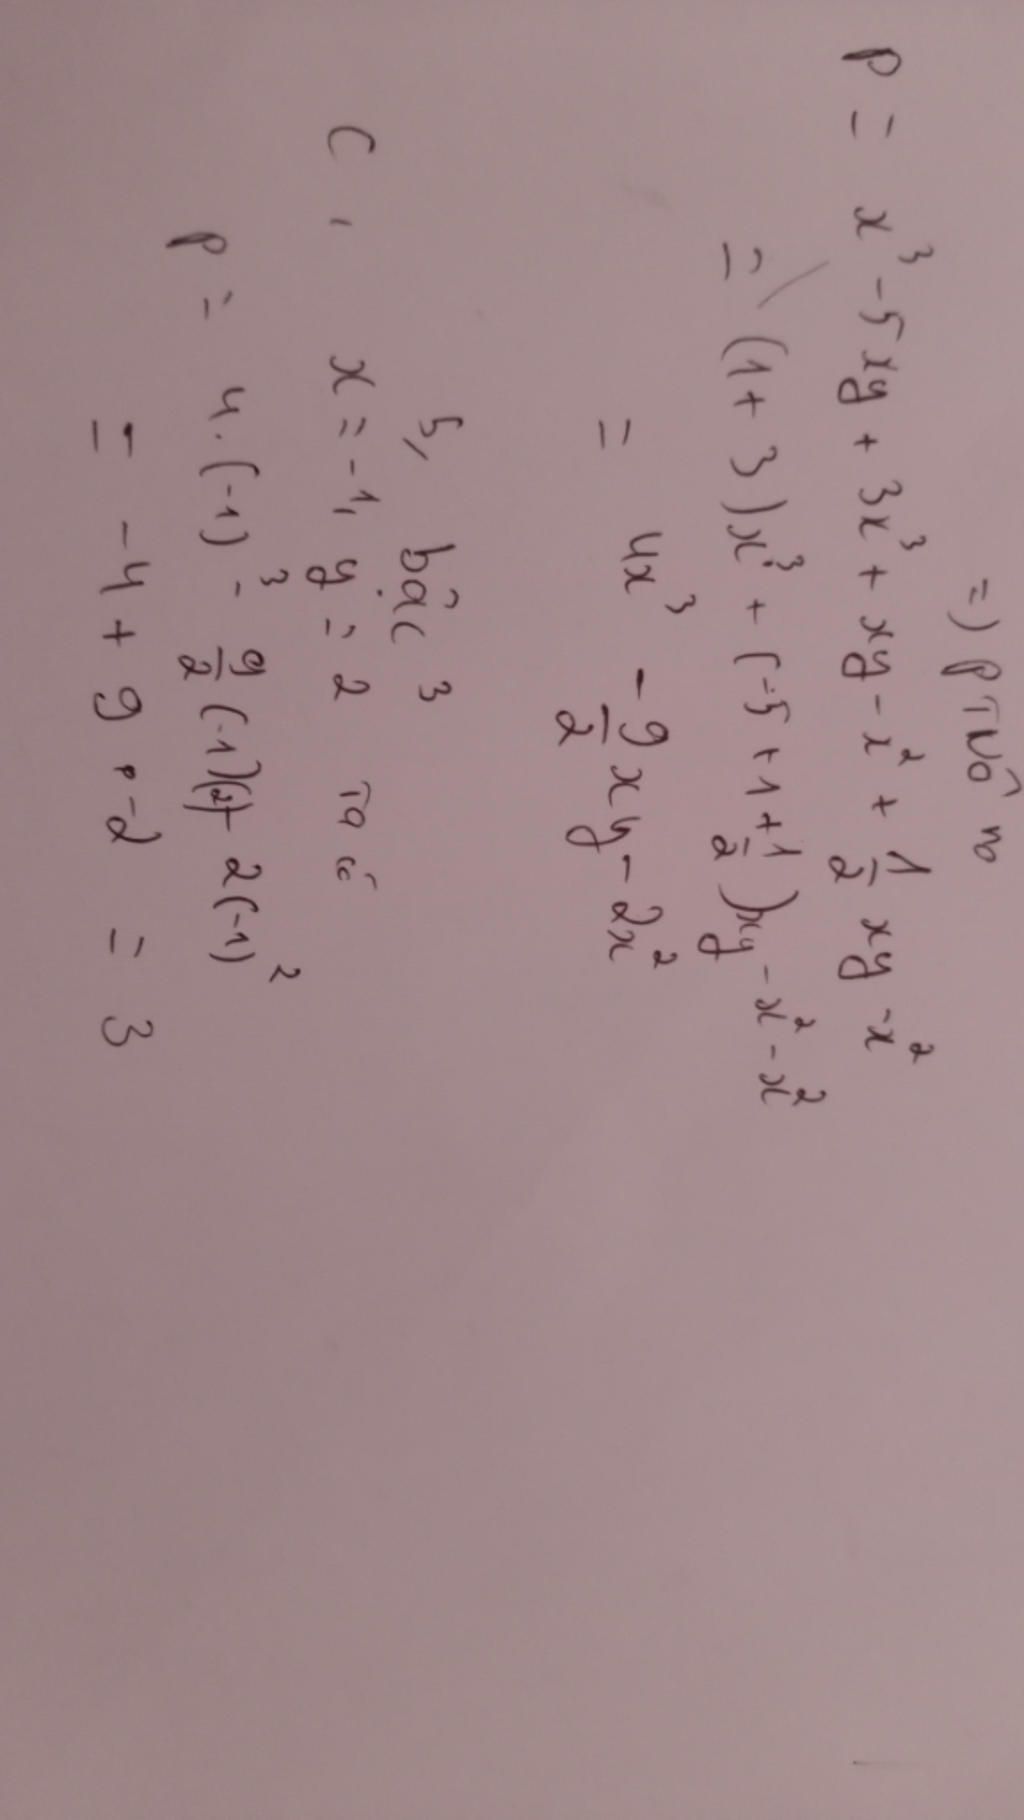 =) PTVô no
P = x³ - 5xy + 3x³ + xy - x² + 1/2 xy - x²
= (1 + 3)x³ + (-5 + 1 + 1/2)xy - x² - x²
= 4x³ - 9/2 xy - 2x²
b, bậc 3
C, x = -1, y = 2 Ta có
P = 4.(-1)³ - 9/2 (-1)(2) - 2(-1)²
= -4 + 9 - 2 = 3